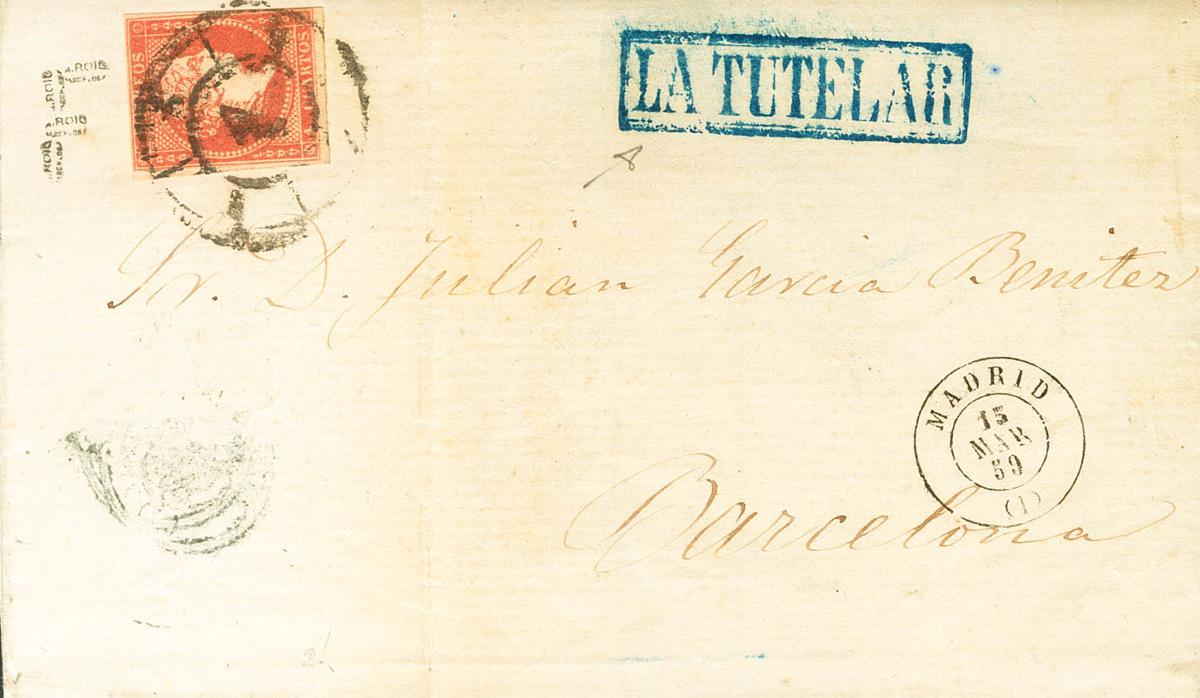 4 CUARTOS
LA TUTELAR
A. ROIG
A. ROIG
A. ROIG
A. ROIG
Sr. D. Julian Garcia Benitez
MADRID
15
MAR
59
(1)
Barcelona